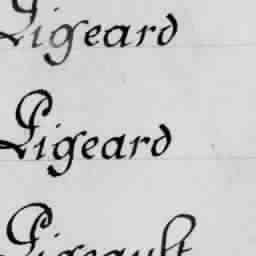 Pigeard
Pigeard
Pigeault